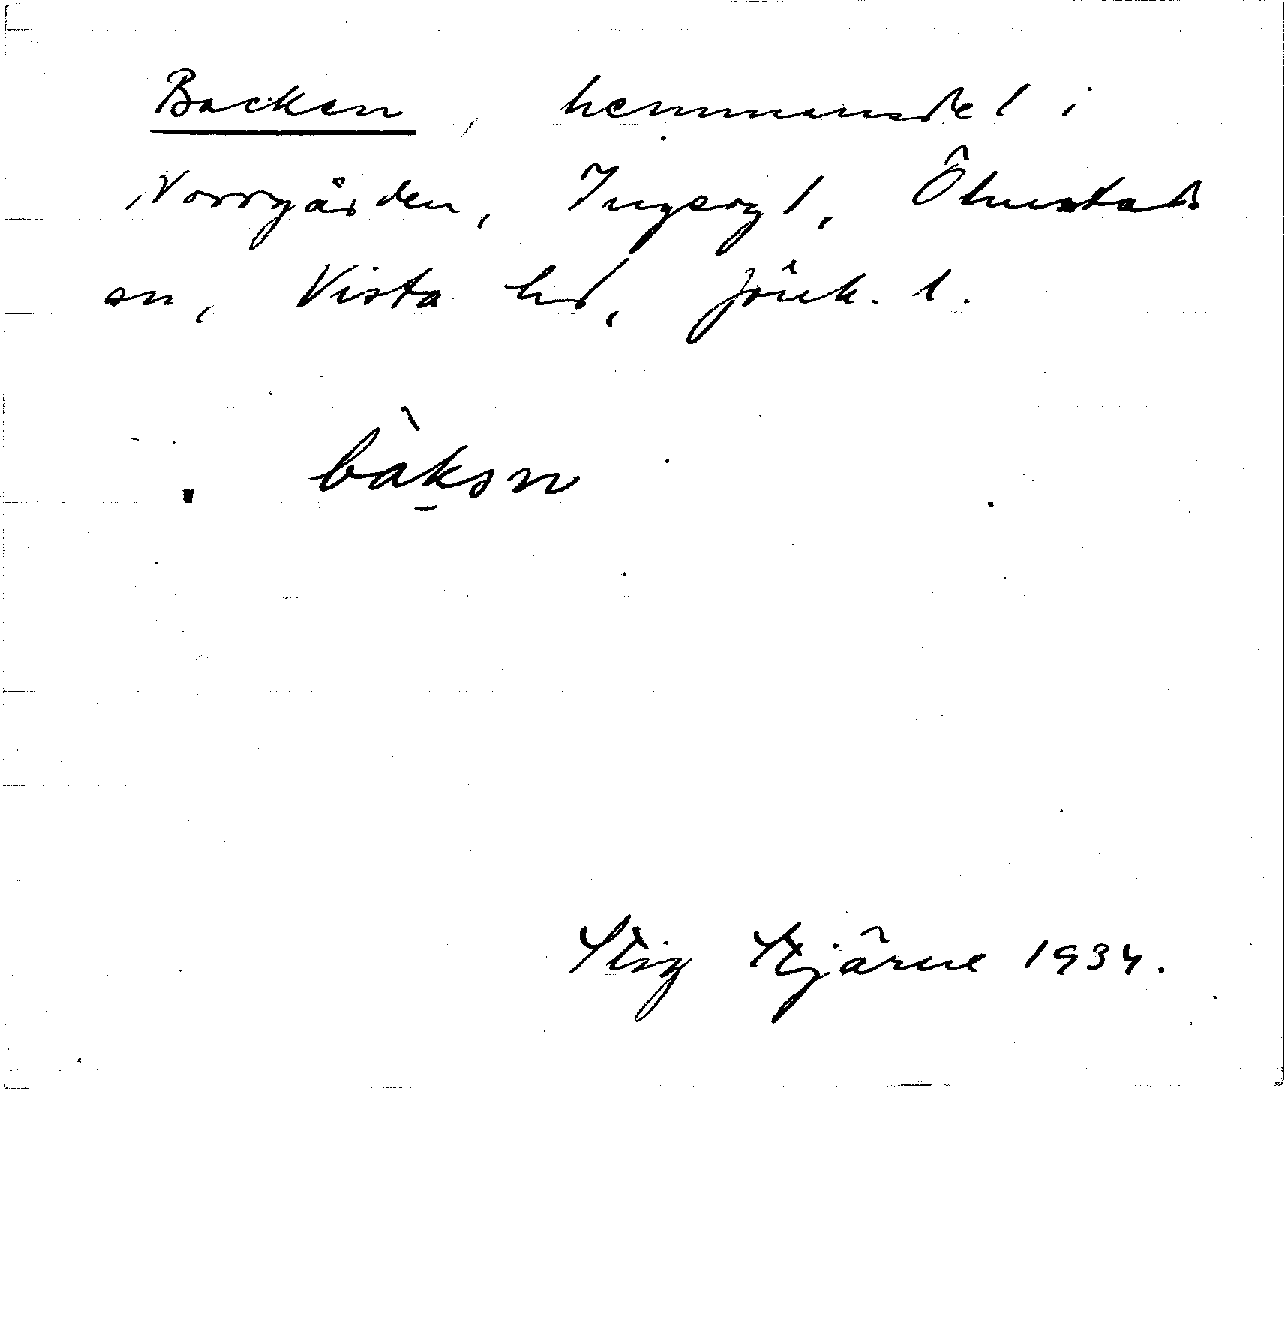 Backen, hemmansdel i
Norrgården, Ingeryd, Ölmstads
sn, Vista hd, Jönk. l.
bàkən
Stig Stjärne 1934.